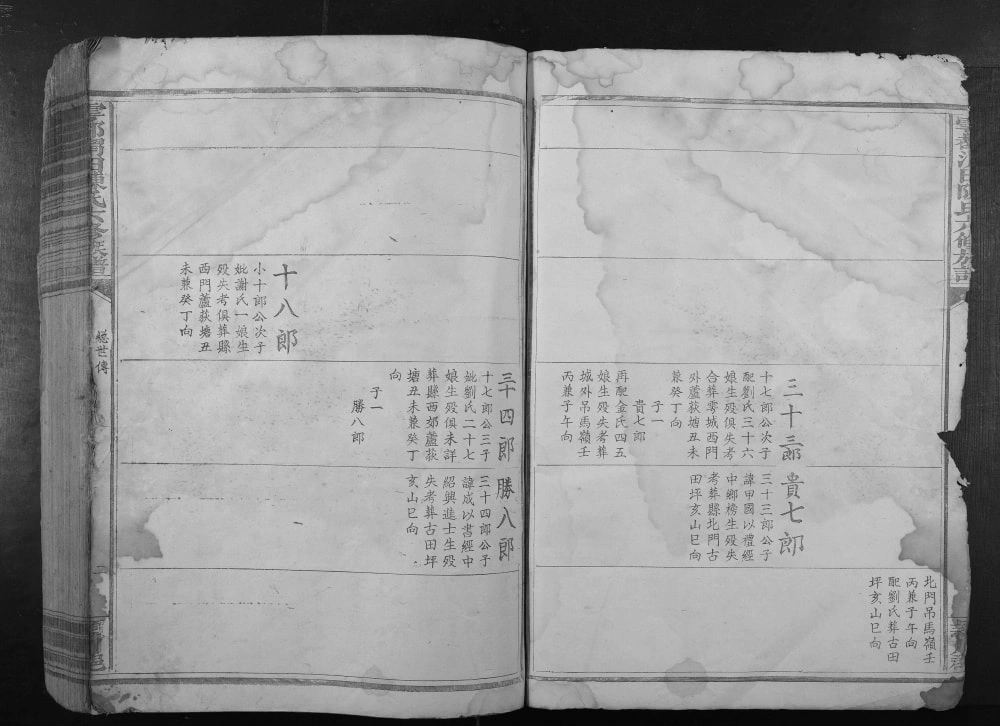 三十三郎
十七郎公次子
配劉氏三十六
娘生殁俱失考
合葬雩城西門
外蘆荻塘丑未
兼癸丁向
子一
貴七郎
再配金氏四五
娘生殁失考葬
城外吊馬嶺壬
丙兼子午向
貴七郎
三十三郎公子
諱甲國以禮經
中鄉榜生殁失
考葬縣北門古
田坪亥山巳向
北門吊馬嶺壬
丙兼子午向
配劉氏葬古田
坪亥山巳向
十八郎
小十郎公次子
妣謝氏一娘生
殁失考俱葬縣
西門蘆荻塘丑
未兼癸丁向
三十四郎
十七郎公三子
妣劉氏二十七
娘生殁俱未詳
葬縣西郊蘆荻
塘丑未兼癸丁
向
子一
勝八郎
勝八郎
三十四郎公子
諱成以書經中
紹興進士生殁
失考葬古田坪
亥山巳向
總世傳